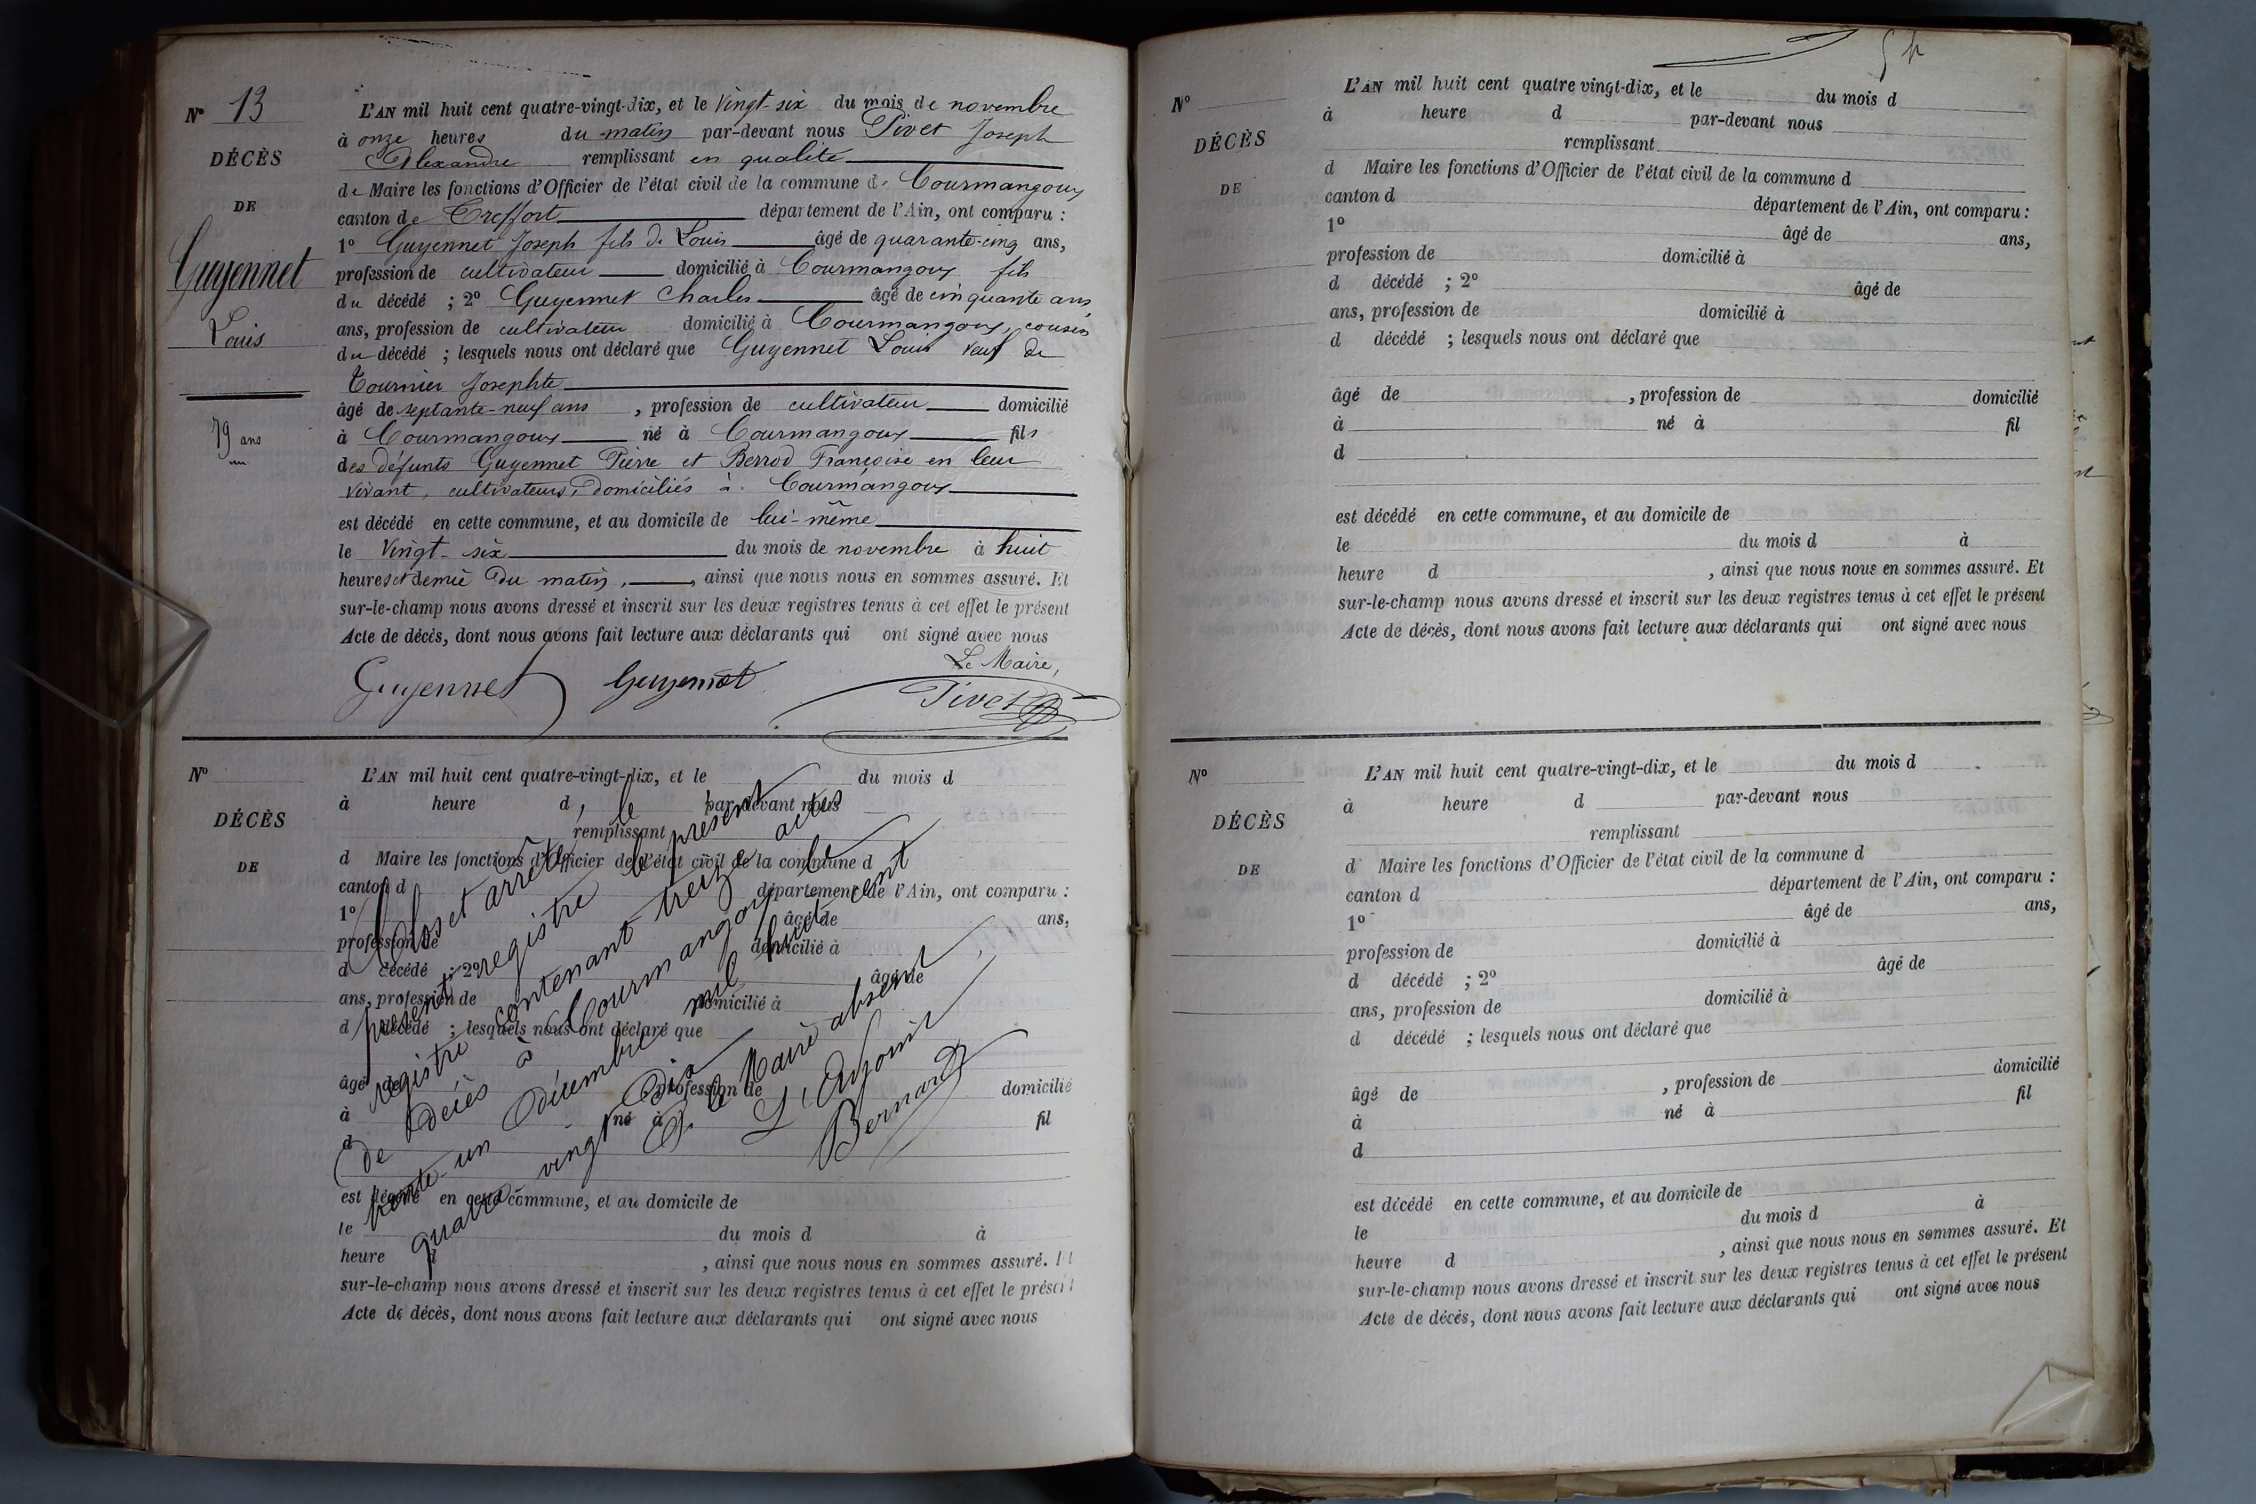 N° 13
DÉCÈS
DE
Guyennet
Louis
79 ans
L'AN mil huit cent quatre-vingt-dix, et le vingt-six du mois de novembre
à onze heures du matin par-devant nous Pivet Joseph
Alexandre remplissant en qualité
de Maire les fonctions d'Officier de l'état civil de la commune de Courmangoux
canton de Treffort département de l'Ain, ont comparu :
1° Guyennet Joseph fils de Louis âgé de quarante-cinq ans,
profession de cultivateur domicilié à Courmangoux fils
du décédé ; 2° Guyennet Charles âgé de cinquante ans
ans, profession de cultivateur domicilié à Courmangoux, cousin
du décédé ; lesquels nous ont déclaré que Guyennet Louis veuf de
Tournier Josephte
âgé de septante-neuf ans , profession de cultivateur domicilié
à Courmangoux né à Courmangoux fils
des défunts Guyennet Pierre et Berrod Françoise en leur
vivant, cultivateurs, domiciliés à Courmangoux
est décédé en cette commune, et au domicile de lui-même
le vingt-six du mois de novembre à huit
heures et demie du matin, , ainsi que nous nous en sommes assuré. Et
sur-le-champ nous avons dressé et inscrit sur les deux registres tenus à cet effet le présent
Acte de décès, dont nous avons fait lecture aux déclarants qui ont signé avec nous
Le Maire,
Guyennet Guyennet Pivet
N°
DÉCÈS
DE
L'AN mil huit cent quatre-vingt-dix, et le du mois d
à heure d par-devant nous
remplissant
d Maire les fonctions d'Officier de l'état civil de la commune d
canton d département de l'Ain, ont comparu :
1° âgé de ans,
profession de domicilié à
d décédé ; 2° âgé de
ans, profession de domicilié à
d décédé ; lesquels nous ont déclaré que
âgé de , profession de domicilié
à né à fil
d
est décédé en cette commune, et au domicile de
le du mois d à
heure d , ainsi que nous nous en sommes assuré. Et
sur-le-champ nous avons dressé et inscrit sur les deux registres tenus à cet effet le présent
Acte de décès, dont nous avons fait lecture aux déclarants qui ont signé avec nous
Clos et arrêté, le
présent registre le présent
registre contenant treize actes
de décès à Courmangoux le
trente-un décembre mil huit cent
quatre-vingt-dix
P. le Maire absent,
L'Adjoint
Bernard
N°
DÉCÈS
DE
L'AN mil huit cent quatre vingt-dix, et le du mois d
à heure d par-devant nous
remplissant
d Maire les fonctions d'Officier de l'état civil de la commune d
canton d département de l'Ain, ont comparu :
1° âgé de ans,
profession de domicilié à
d décédé ; 2° âgé de
ans, profession de domicilié à
d décédé ; lesquels nous ont déclaré que
âgé de , profession de domicilié
à né à fil
d
est décédé en cette commune, et au domicile de
le du mois d à
heure d , ainsi que nous nous en sommes assuré. Et
sur-le-champ nous avons dressé et inscrit sur les deux registres tenus à cet effet le présent
Acte de décès, dont nous avons fait lecture aux déclarants qui ont signé avec nous
N°
DÉCÈS
DE
L'AN mil huit cent quatre-vingt-dix, et le du mois d
à heure d par-devant nous
remplissant
d Maire les fonctions d'Officier de l'état civil de la commune d
canton d département de l'Ain, ont comparu :
1° âgé de ans,
profession de domicilié à
d décédé ; 2° âgé de
ans, profession de domicilié à
d décédé ; lesquels nous ont déclaré que
âgé de , profession de domicilié
à né à fil
d
est décédé en cette commune, et au domicile de
le du mois d à
heure d , ainsi que nous nous en sommes assuré. Et
sur-le-champ nous avons dressé et inscrit sur les deux registres tenus à cet effet le présent
Acte de décès, dont nous avons fait lecture aux déclarants qui ont signé avec nous